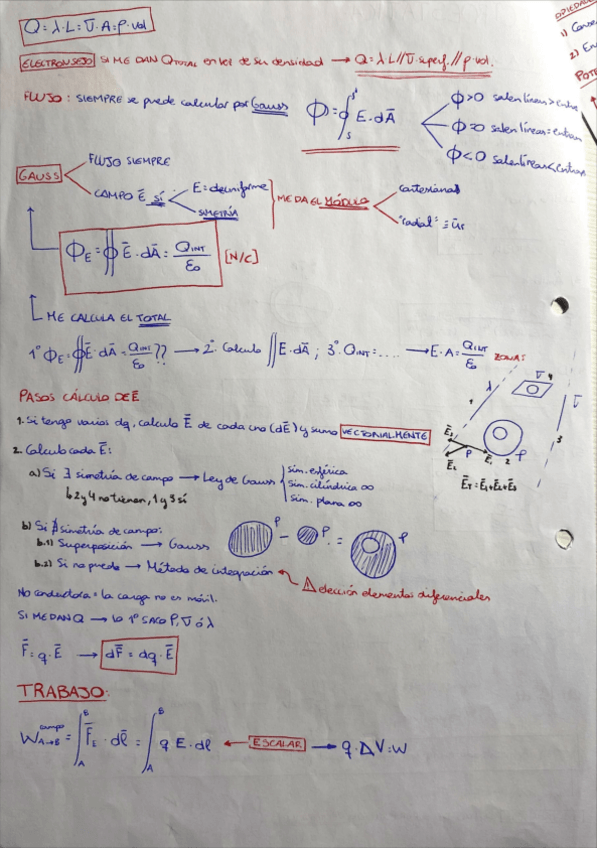 Q = λ·L = ∇·A = ρ·vol
ELECTRONSEJO SI ME DAN Q TOTAL en vez de su densidad → Q = λ·L // ∇·superf. // ρ·vol.
FLUJO: SIEMPRE se puede calcular por Gauss Φ = ∮ E·dĀ
Φ>0 salen líneas > entran
Φ=0 salen líneas = entran
Φ<0 salen líneas < entran
GAUSS
FLUJO SIEMPRE
CAMPO Ē sí
E = de uniforme
SIMETRÍA
ME DA EL MÓDULO
cartesianas
"radial" ≡ ūr
Φ_E = ∯ Ē·dĀ = Q_INT/ε₀ [N/C]
ME CALCULA EL TOTAL
1º Φ_E = ∯ Ē·dĀ = Q_INT/ε₀ ?? → 2º. Calculo ∬ Ē·dĀ ; 3º. Q_INT = .... → E·A = Q_INT/ε₀
ZONA:
PASOS CÁLCULO DE Ē
1. Si tengo varios dq, calculo Ē de cada uno (dĒ) y sumo VECTORIALMENTE
2. Calculo cada Ē:
a) Si ∃ simetría de campo → Ley de Gauss
sim. esférica
sim. cilíndrica ∞
sim. plana ∞
2 y 4 no tienen, 1 y 3 sí
λ
1
∇ 4
∇
3
Ē₃
Ē₂
P
Ē₁
2
ρ
Ē_T = Ē₁+Ē₂+Ē₃
b) Si ∄ simetría de campo:
b.1) Superposición → Gauss
ρ - ρ = ρ
b.2) Si no puedo → Método de integración
⚠ elección elementos diferenciales
No conductora = la carga no es móvil.
SI ME DAN Q → lo 1º saco ρ, ∇ ó λ
F̄ = q·Ē → dF̄ = dq·Ē
TRABAJO:
W campo A→B = ∫_A^B F̄_E · dl̄ = ∫_A^B q E·dl ← ESCALAR → q·ΔV = W
1)
2)